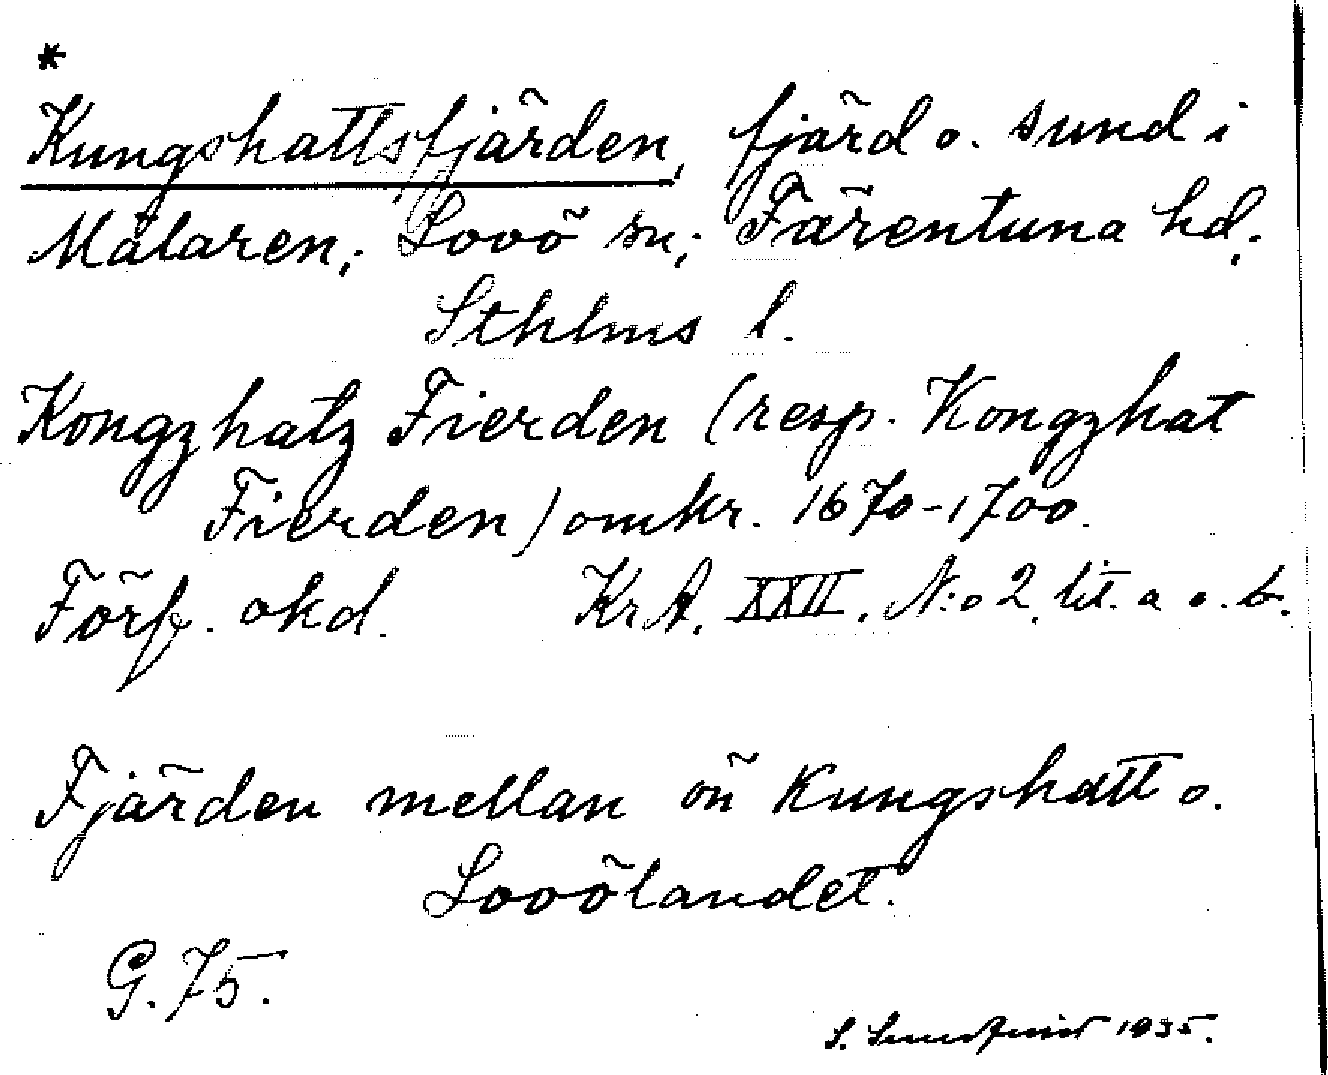 *
Kungshattsfjärden, fjärd o. sund i
Mälaren; Lovö sn; Färentuna hd;
Sthlms l.
Kongzhatz Fierden (resp. Kongzhat
Fierden) omkr. 1670-1700.
Förf. okd. KrA. XXII. N:o 2. lit. a o. b.
Fjärden mellan ön Kungshatt o.
Lovölandet.
G. 75.
S. 1935.